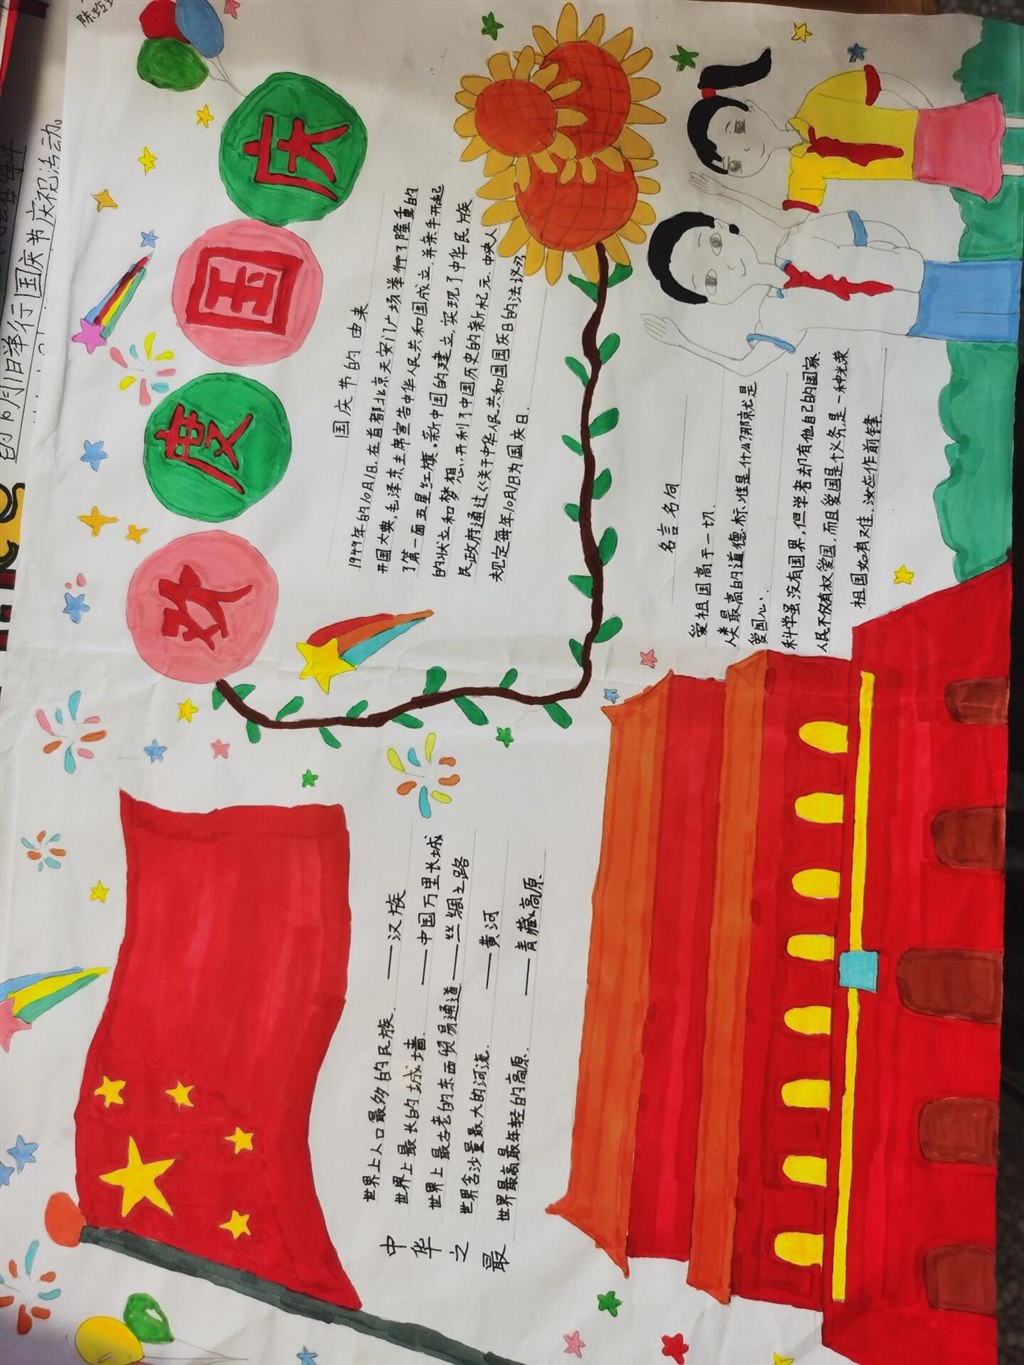 的10月1日举行国庆节庆祝活动
欢度国庆
国庆节的由来
1949年的10月1日,在首都北京天安门广场举行了隆重的
开国大典,毛泽东主席宣告中华人民共和国成立,并亲手升起
了第一面五星红旗。新中国的建立,实现了中华民族
的独立和梦想,开创了中国历史的新纪元.中央人
民政府通过《关于中华人民共和国国庆日的决议》,
规定每年10月1日为国庆日.
中华之最
世界上人口最多的民族.——汉族
世界上最长的城墙.——中国万里长城
世界上最古老的东西贸易通道——丝绸之路
世界含沙量最大的河流.——黄河
世界最高最年轻的高原.——青藏高原.
名言名句
爱祖国高于一切.
人类最高的道德标准是什么?那就是
爱国心、
科学虽没有国界,但学者却有他自己的国家
人民不仅有权爱国,而且爱国是个义务,是一种光荣
祖国如有难,汝应作前锋.